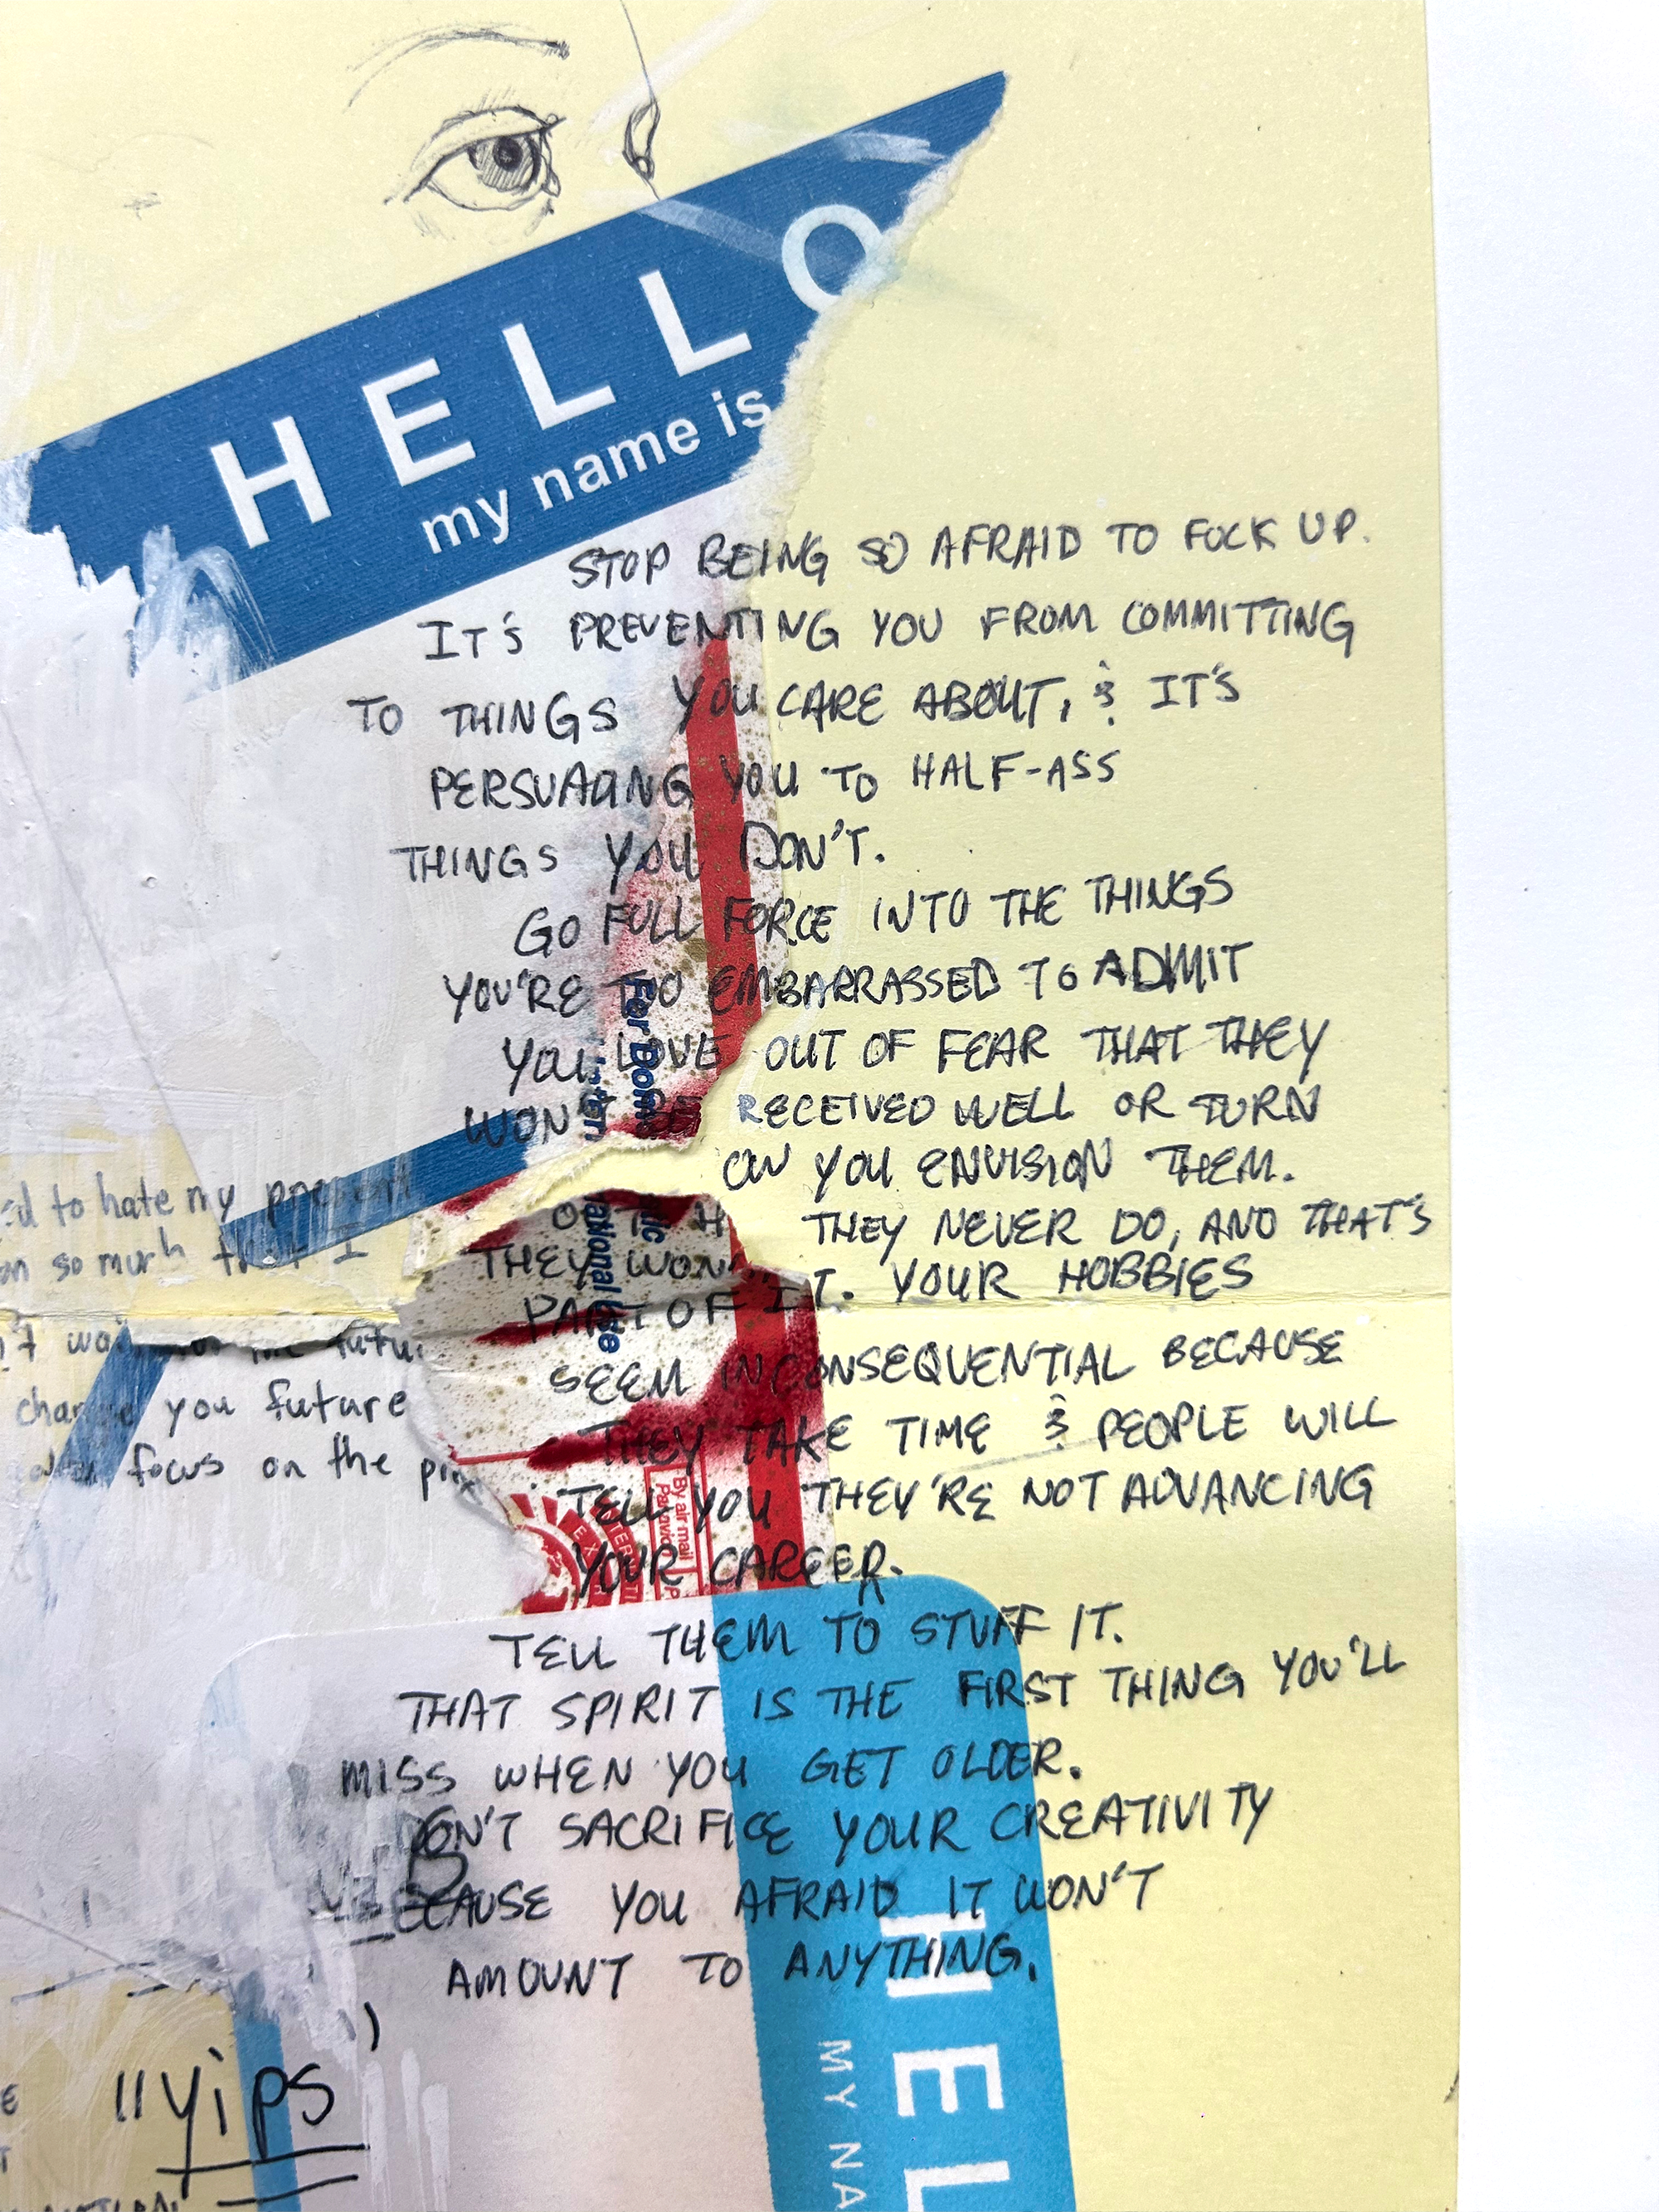 HELLO
my name is
STOP BEING SO AFRAID TO FUCK UP.
IT'S PREVENTING YOU FROM COMMITTING
TO THINGS YOU CARE ABOUT, & IT'S
PERSUADING YOU TO HALF-ASS
THINGS YOU DON'T.
GO FULL FORCE INTO THE THINGS
YOU'RE TOO EMBARRASSED TO ADMIT
YOU LOVE OUT OF FEAR THAT THEY
WON'T BE RECEIVED WELL OR TURN
OW YOU ENVISION THEM.
THEY NEVER DO, AND THAT'S
PART OF IT. YOUR HOBBIES
SEEM INCONSEQUENTIAL BECAUSE
THEY TAKE TIME & PEOPLE WILL
TELL YOU THEY'RE NOT ADVANCING
YOUR CAREER.
TELL THEM TO STUFF IT.
THAT SPIRIT IS THE FIRST THING YOU'LL
MISS WHEN YOU GET OLDER.
DON'T SACRIFICE YOUR CREATIVITY
BECAUSE YOU AFRAID IT WON'T
AMOUNT TO ANYTHING.
THEY WON
to hate my
so much that I
futu
you future
focus on the
By air mail
Par avion
"yips
HEL
MY NA